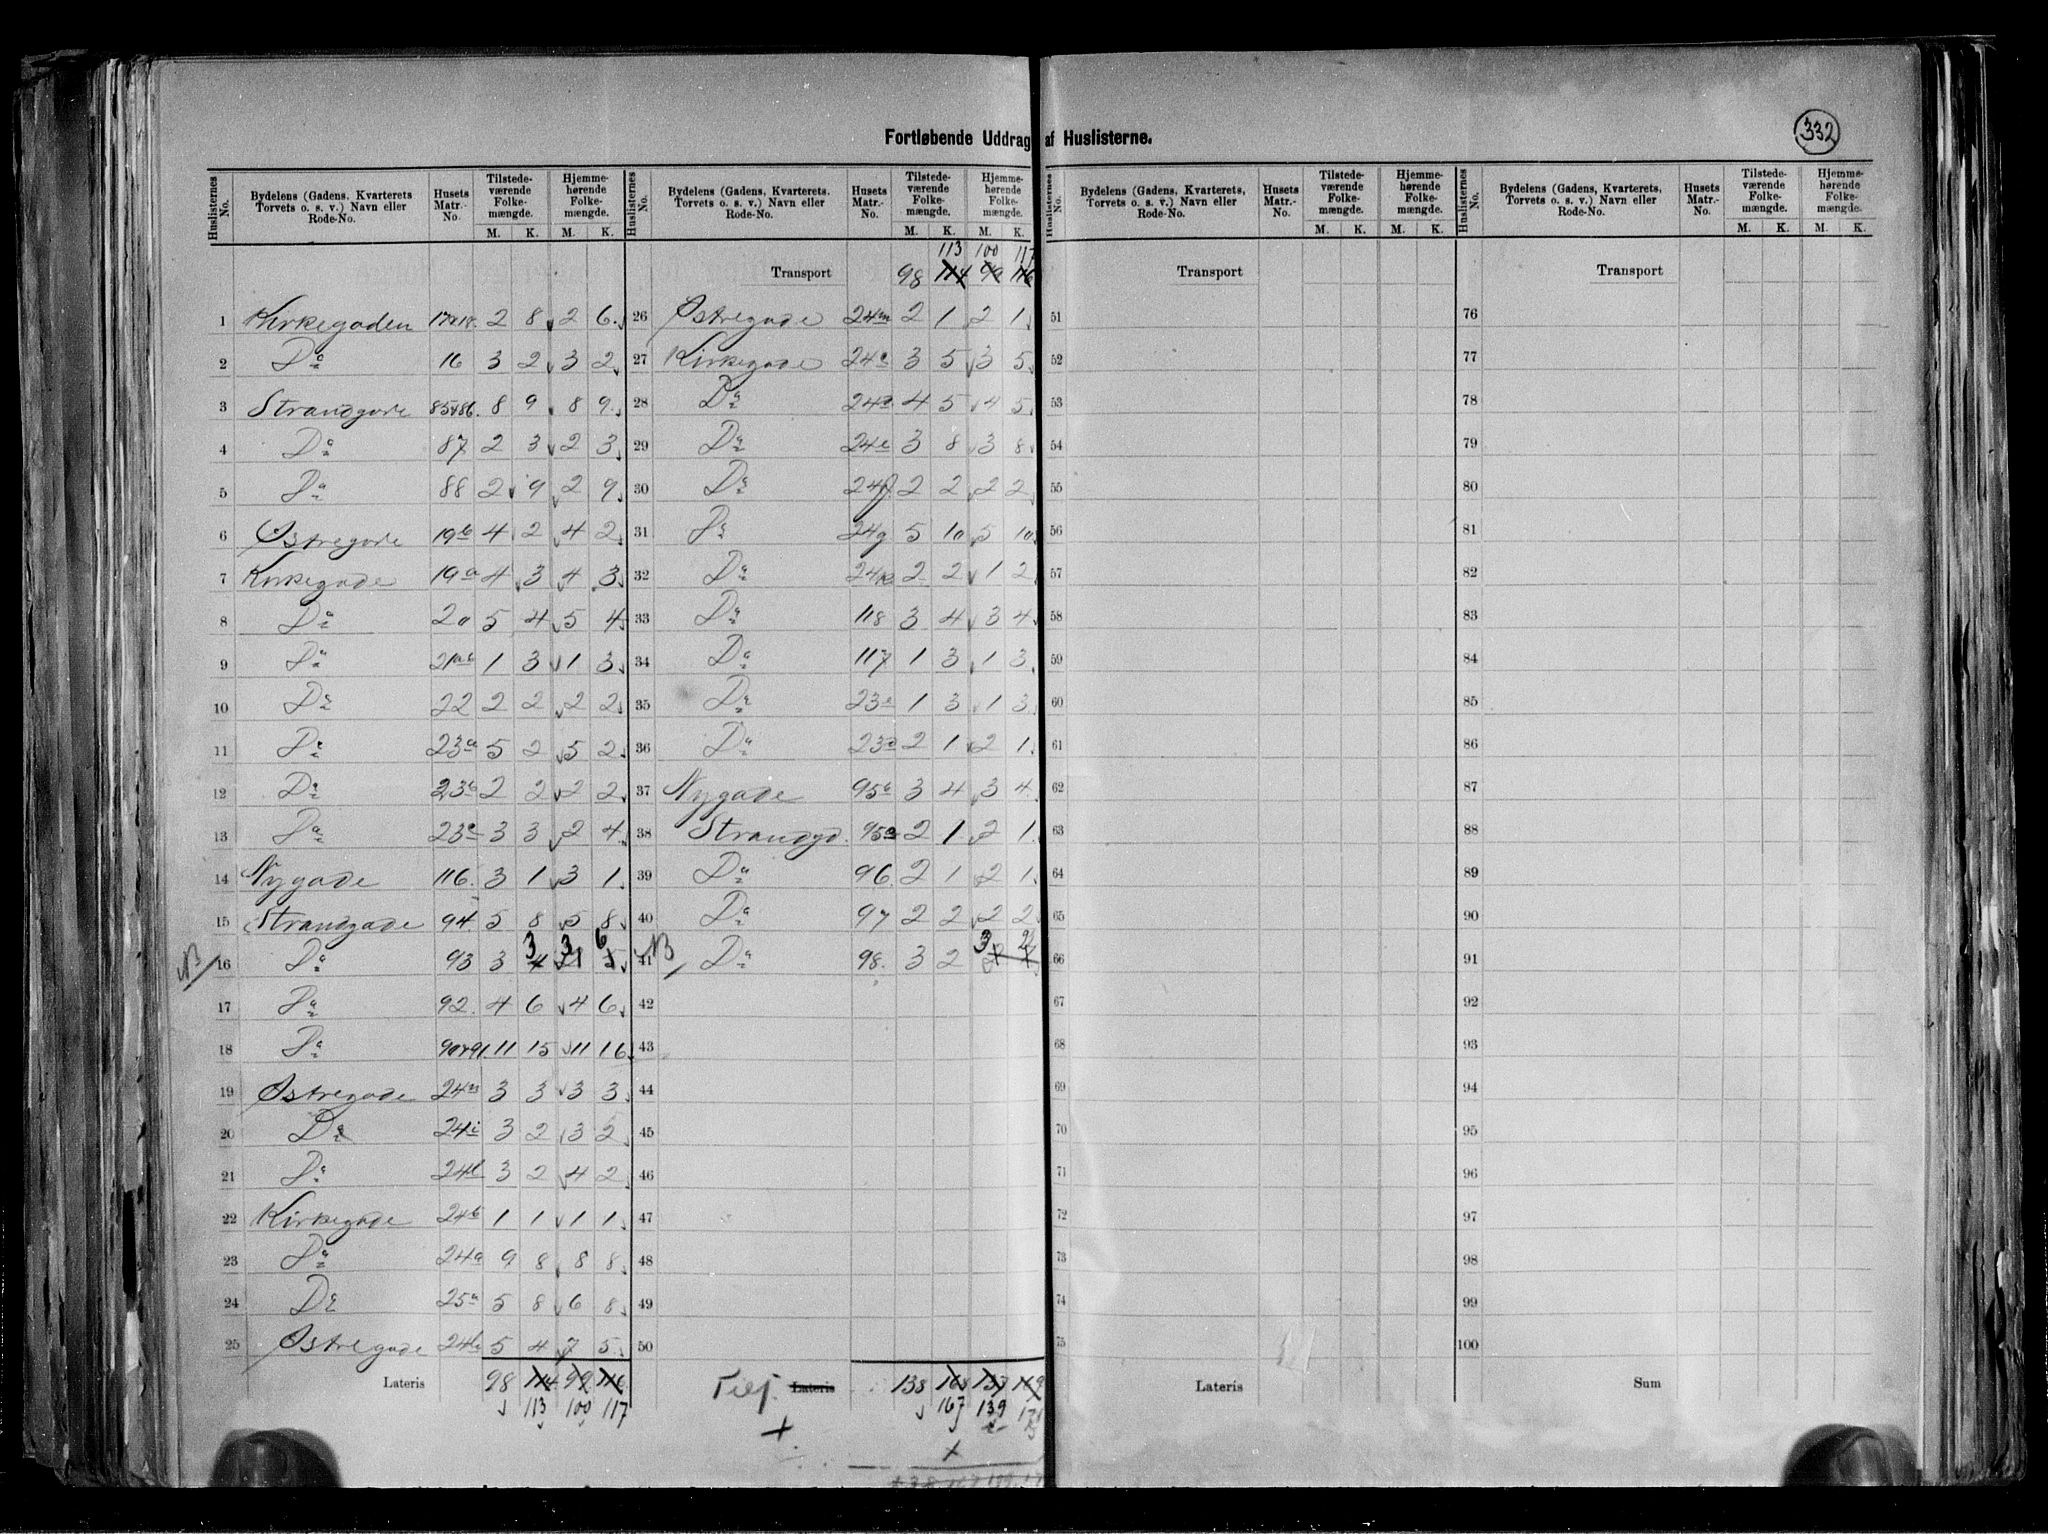 Fortløbende Uddrag af Huslisterne.
332
Huslisternes No. | Bydelens (Gadens, Kvarterets Torvets o. s. v.) Navn eller Rode-No. | Husets Matr.-No. | Tilstede-værende Folke-mængde. M. K. | Hjemme-hørende Folke-mængde. M. K.
1 Kirkegaden 17&18. 2 8 2 6
2 Do 16 3 2 3 2
3 Strandgade 85&86. 8 9 8 9
4 Do 87 2 3 2 3
5 Do 88 2 9 2 9
6 Østregade 19b 4 2 4 2
7 Kirkegade 19a 4 3 4 3
8 Do 20 5 4 5 4
9 Do 21ab 1 3 1 3
10 Do 22 2 2 2 2
11 Do 23a 5 2 5 2
12 Do 23b 2 2 2 2
13 Do 23 3 3 2 4
14 Nygade 116. 3 1 3 1
15 Strandgade 94. 5 8 5 8
3 3 6
NB 16 Do 93 3 4 1 5
17 Do 92. 4 6 4 6
18 Do 90&91. 11 15 11 16
19 Østregade 24m 3 3 3 3
20 Do 24i 3 2 3 2
21 Do 24l 3 2 4 2
22 Kirkegade 24b 1 1 1 1
23 Do 24a 9 8 8 8
24 Do 25a 5 8 6 8
25 Østregade 24 5 4 7 5
Lateris 98 114 99 116
113 100 117
Huslisternes No. | Bydelens (Gadens, Kvarterets. Torvets o. s. v.) Navn eller Rode-No. | Husets Matr.-No. | Tilstede-værende Folke-mængde. M. K. | Hjemme-hørende Folke-mængde. M. K.
113 100 117
Transport 98 114 99 116
26 Østregade 24 2 1 2 1
27 Kirkegade 24 3 5 3 5
28 Do 24d 4 5 4 5
29 Do 24e 3 8 3 8
30 Do 24f. 2 2 2 2
31 Do 24g 5 10 5 10
32 Do 24 2 2 1 2
33 Do 118 3 4 3 4
34 Do 117 1 3 1 3
35 Do 23 1 3 1 3
36 Do 23d 2 1 2 1
37 Nygade 95b 3 4 3 4
38 Strandgd. 95a 2 1 2 1
39 Do 96. 2 1 2 1
40 Do 97 2 2 2 2
3 2
NB 41 Do 98. 3 2
42
43
44
45
46
47
48
49
50
Tils. Lateris 138 168 137 169
167 139 171
138 167 139
Huslisternes No. | Bydelens (Gadens, Kvarterets, Torvets o. s. v.) Navn eller Rode-No. | Husets Matr.-No. | Tilstede-værende Folke-mængde. M. K. | Hjemme-hørende Folke-mængde. M. K.
Transport
51
52
53
54
55
56
57
58
59
60
61
62
63
64
65
66
67
68
69
70
71
72
73
74
75
Lateris
Huslisternes No. | Bydelens (Gadens, Kvarterets, Torvets o. s. v.) Navn eller Rode-No. | Husets Matr.-No. | Tilstede-værende Folke-mængde. M. K. | Hjemme-hørende Folke-mængde. M. K.
Transport
76
77
78
79
80
81
82
83
84
85
86
87
88
89
90
91
92
93
94
95
96
97
98
99
100
Sum